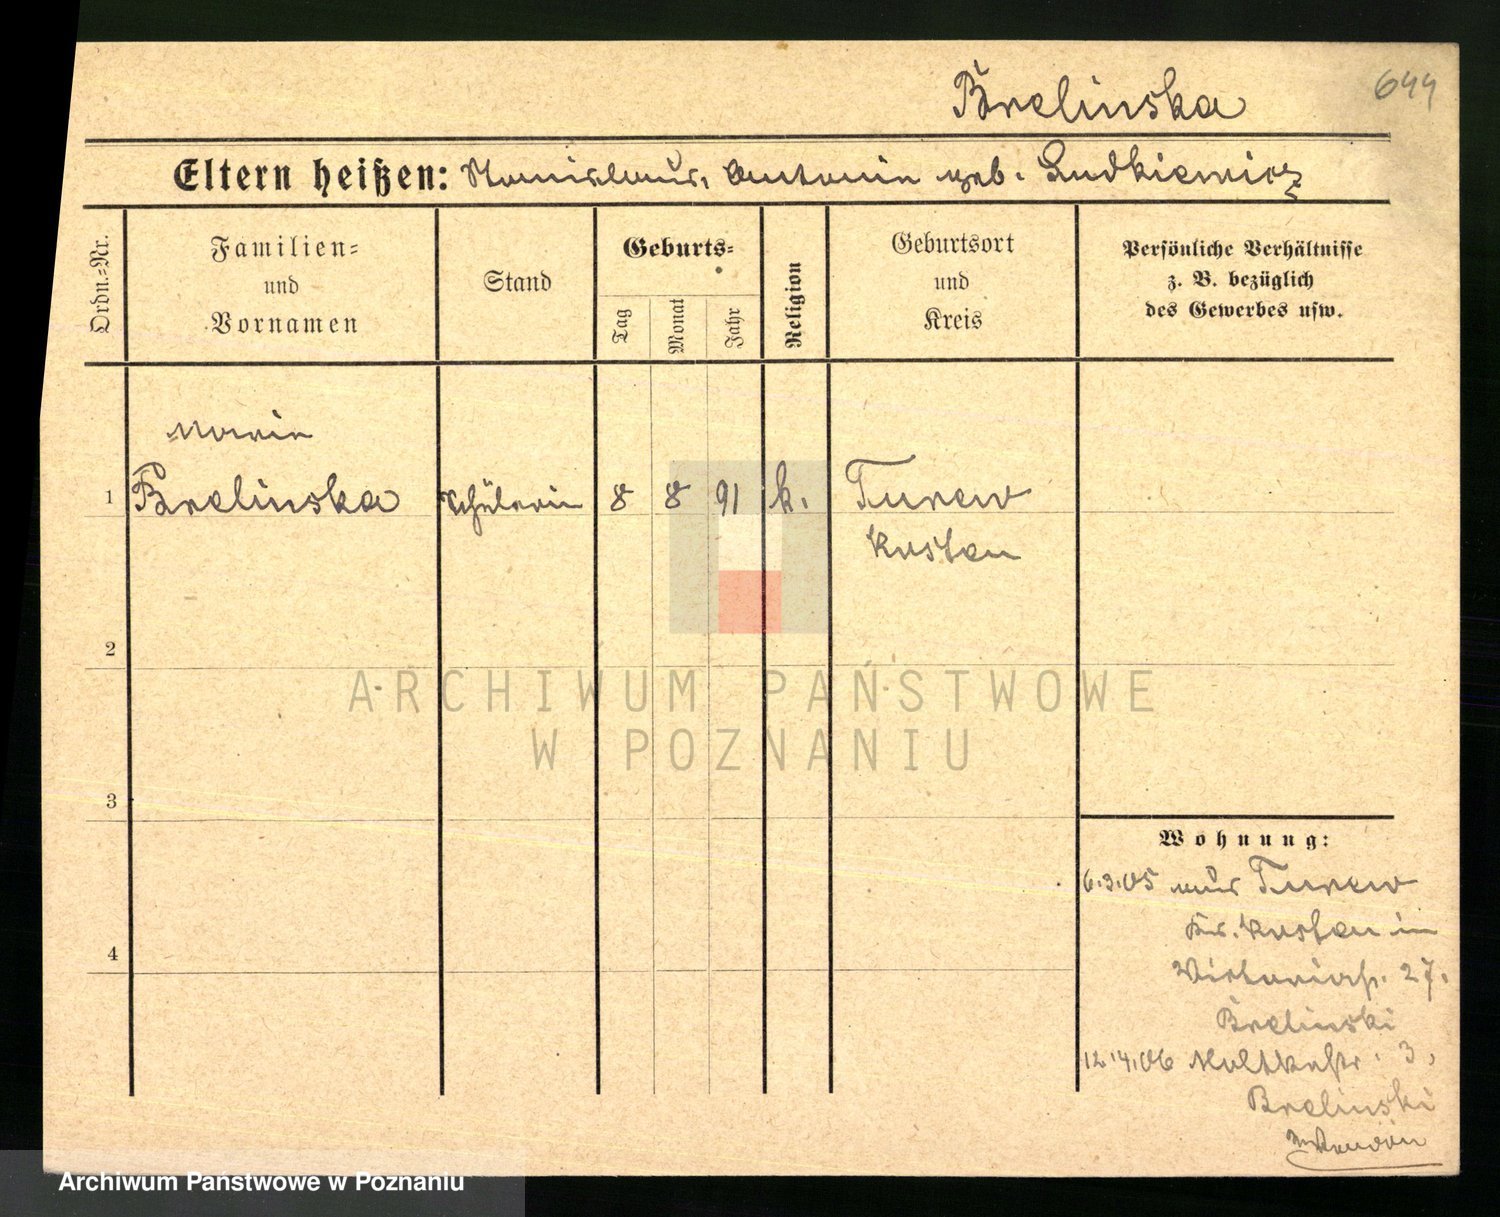 Brelinska
644
Eltern heißen: Stanislaus, Antonie geb. Ludkiewicz
Ordn.-Nr.
Familien-
und
Vornamen
Stand
Geburts-
Tag
Monat
Jahr
Religion
Geburtsort
und
Kreis
Persönliche Verhältnisse
z. B. bezüglich
des Gewerbes usw.
Marie
1 Brelinska Schülerin 8 8 91 k. Turew
Kosten
2
ARCHIWUM PAŃSTWOWE
W POZNANIU
3
Wohnung:
6.3.05 aus Turew
Kr. Kosten in
Victoriastr. 27.
Brelinski
4
12.4.06 Moltkestr. 3,
Brelinski
Archiwum Państwowe w Poznaniu